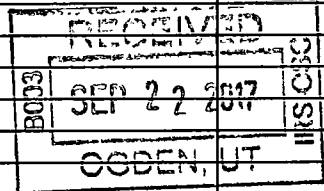 RECEIVED
B003
SEP 22 2017
IRS OSC
OGDEN, UT